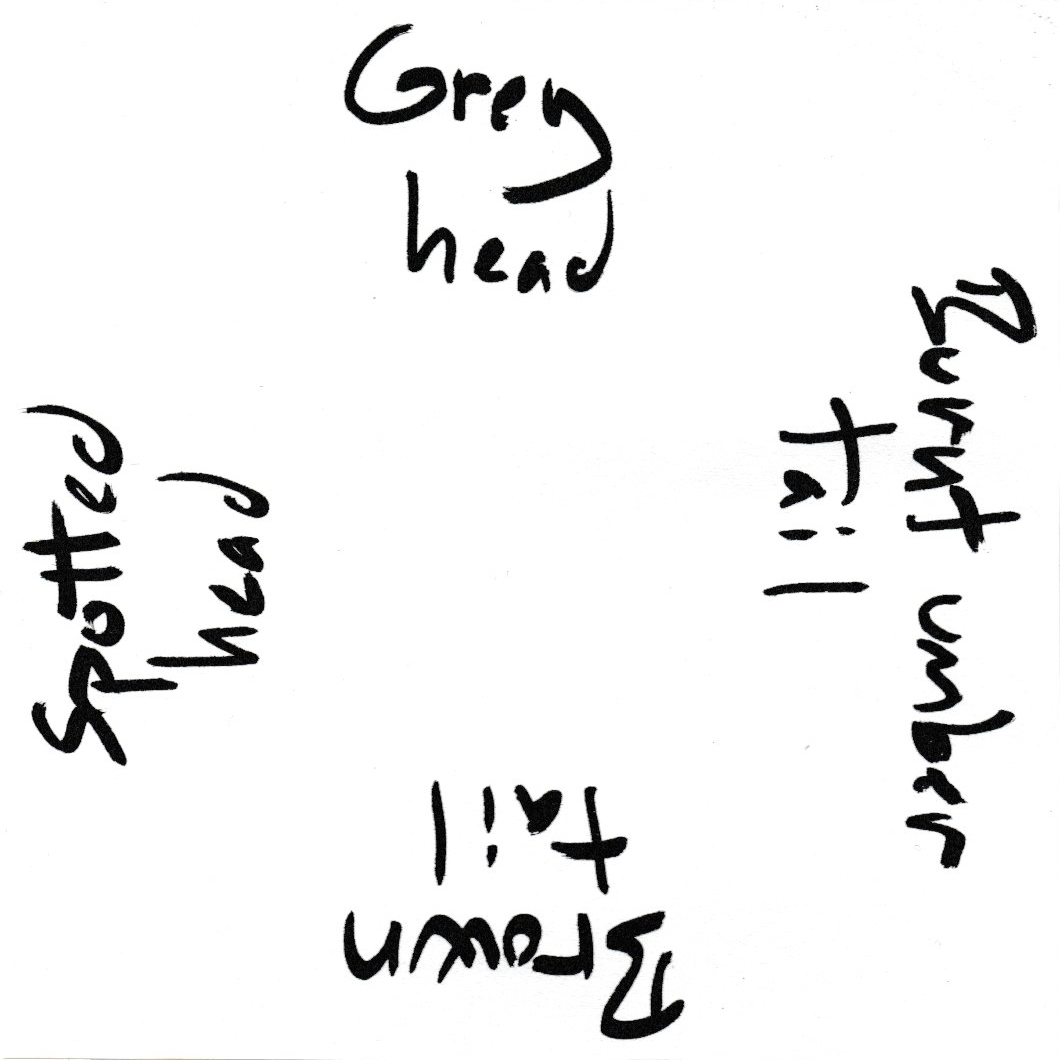 Grey
head
Burnt umber
tail
Brown
tail
Spotted
head